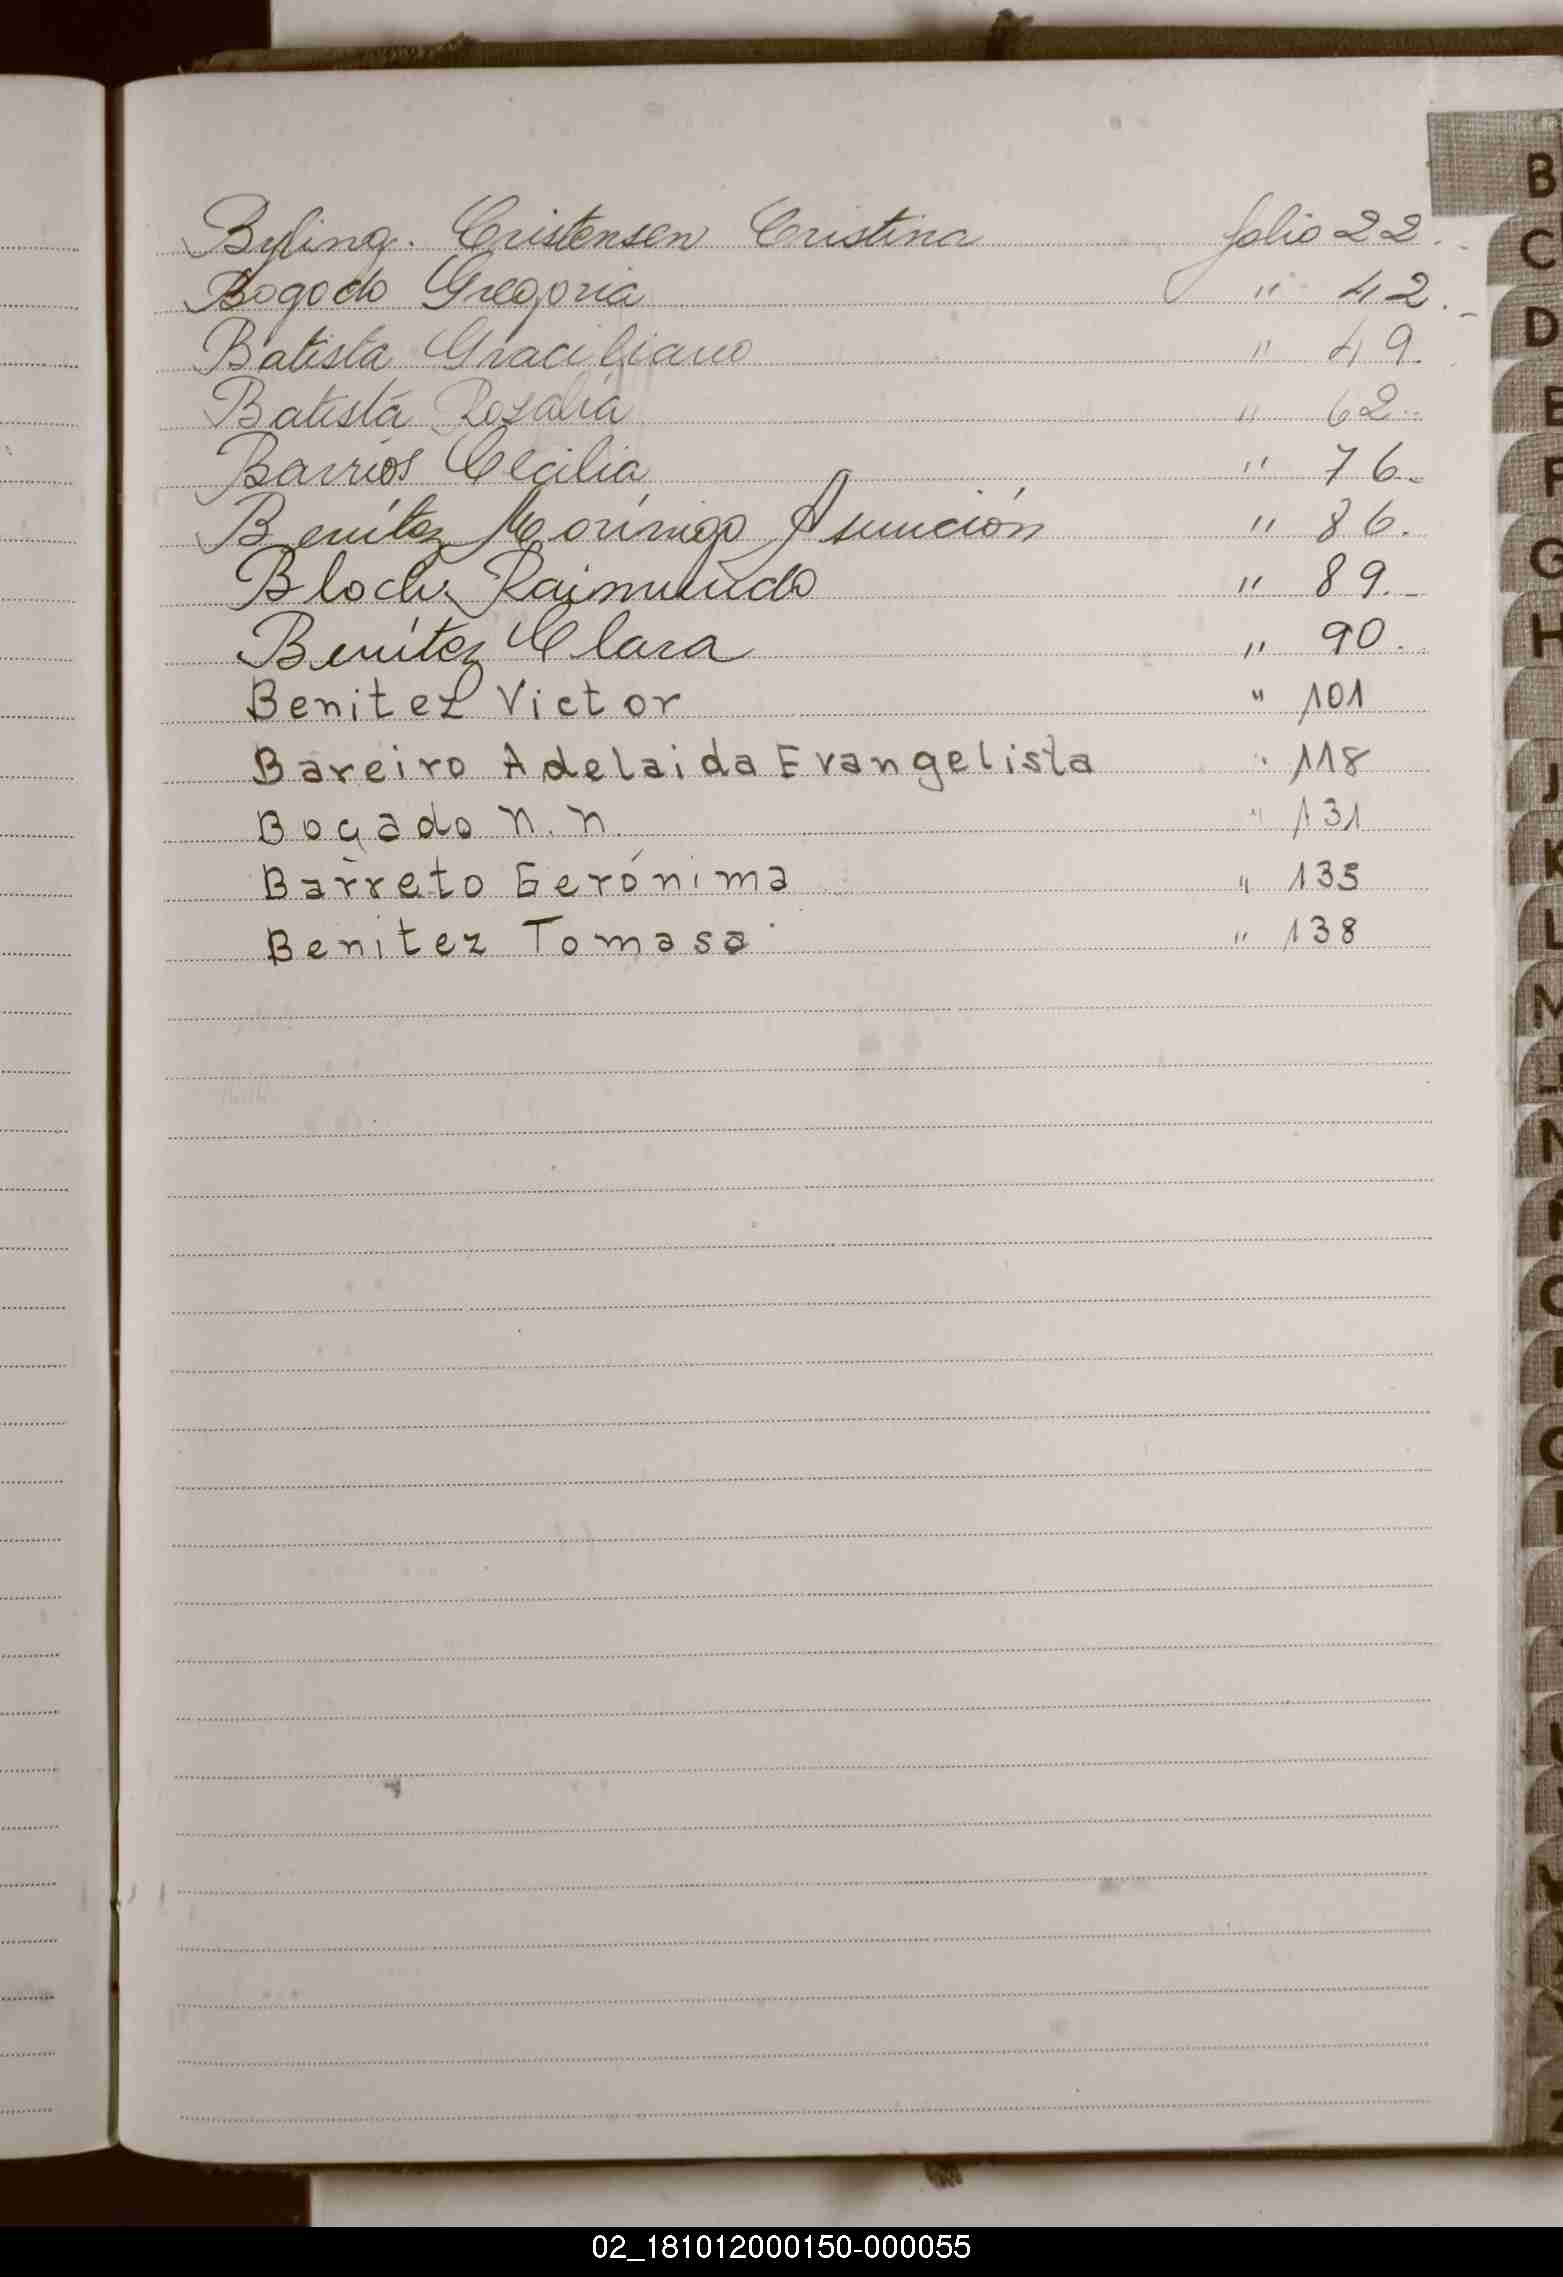 Byling. Cristensen Cristina folio 22.
Bogado Gregoria " 42.
Batista Graciliano " 49.
Batista Rosalia " 62.
Barrios Cecilia " 76.
Benítez Morínigo Asunción " 86.
Bloch Raimundo " 89.
Benítez Clara " 90.
Benitez Victor " 101
Bareiro Adelaida Evangelista " 118
Bogado N. N. " 131
Barreto Gerónima " 135
Benitez Tomasa " 138
B
C
D
E
F
G
H
I
J
K
L
02_181012000150-000055